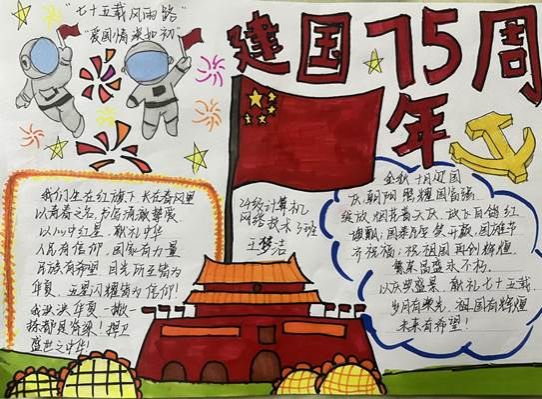 "七十五载风雨路"
"爱国情怀如初"
建国75周
年
我们生在红旗下, 长在春风里
以青春之名, 书
以心中红星, 献礼中华
人民有信仰, 国家有力量
民族有希望, 目光所至皆为
华夏, 五星闪耀皆为信仰!
我泱泱华夏, 一撇一
捺都是脊梁! 捍卫
盛世之中华!
24级计算机
网络技术3班
王梦
金秋十月迎国
庆, 朝阳照耀国富强.
绽放烟花春天庆, 放飞白鸽红
旗飘; 国泰民安笑开颜, 国雄节
齐祝福; 祝祖国再创辉煌
繁荣昌盛永不朽.
以庆盛景, 献礼七十五载.
岁月有荣光, 祖国有辉煌
未来有希望!